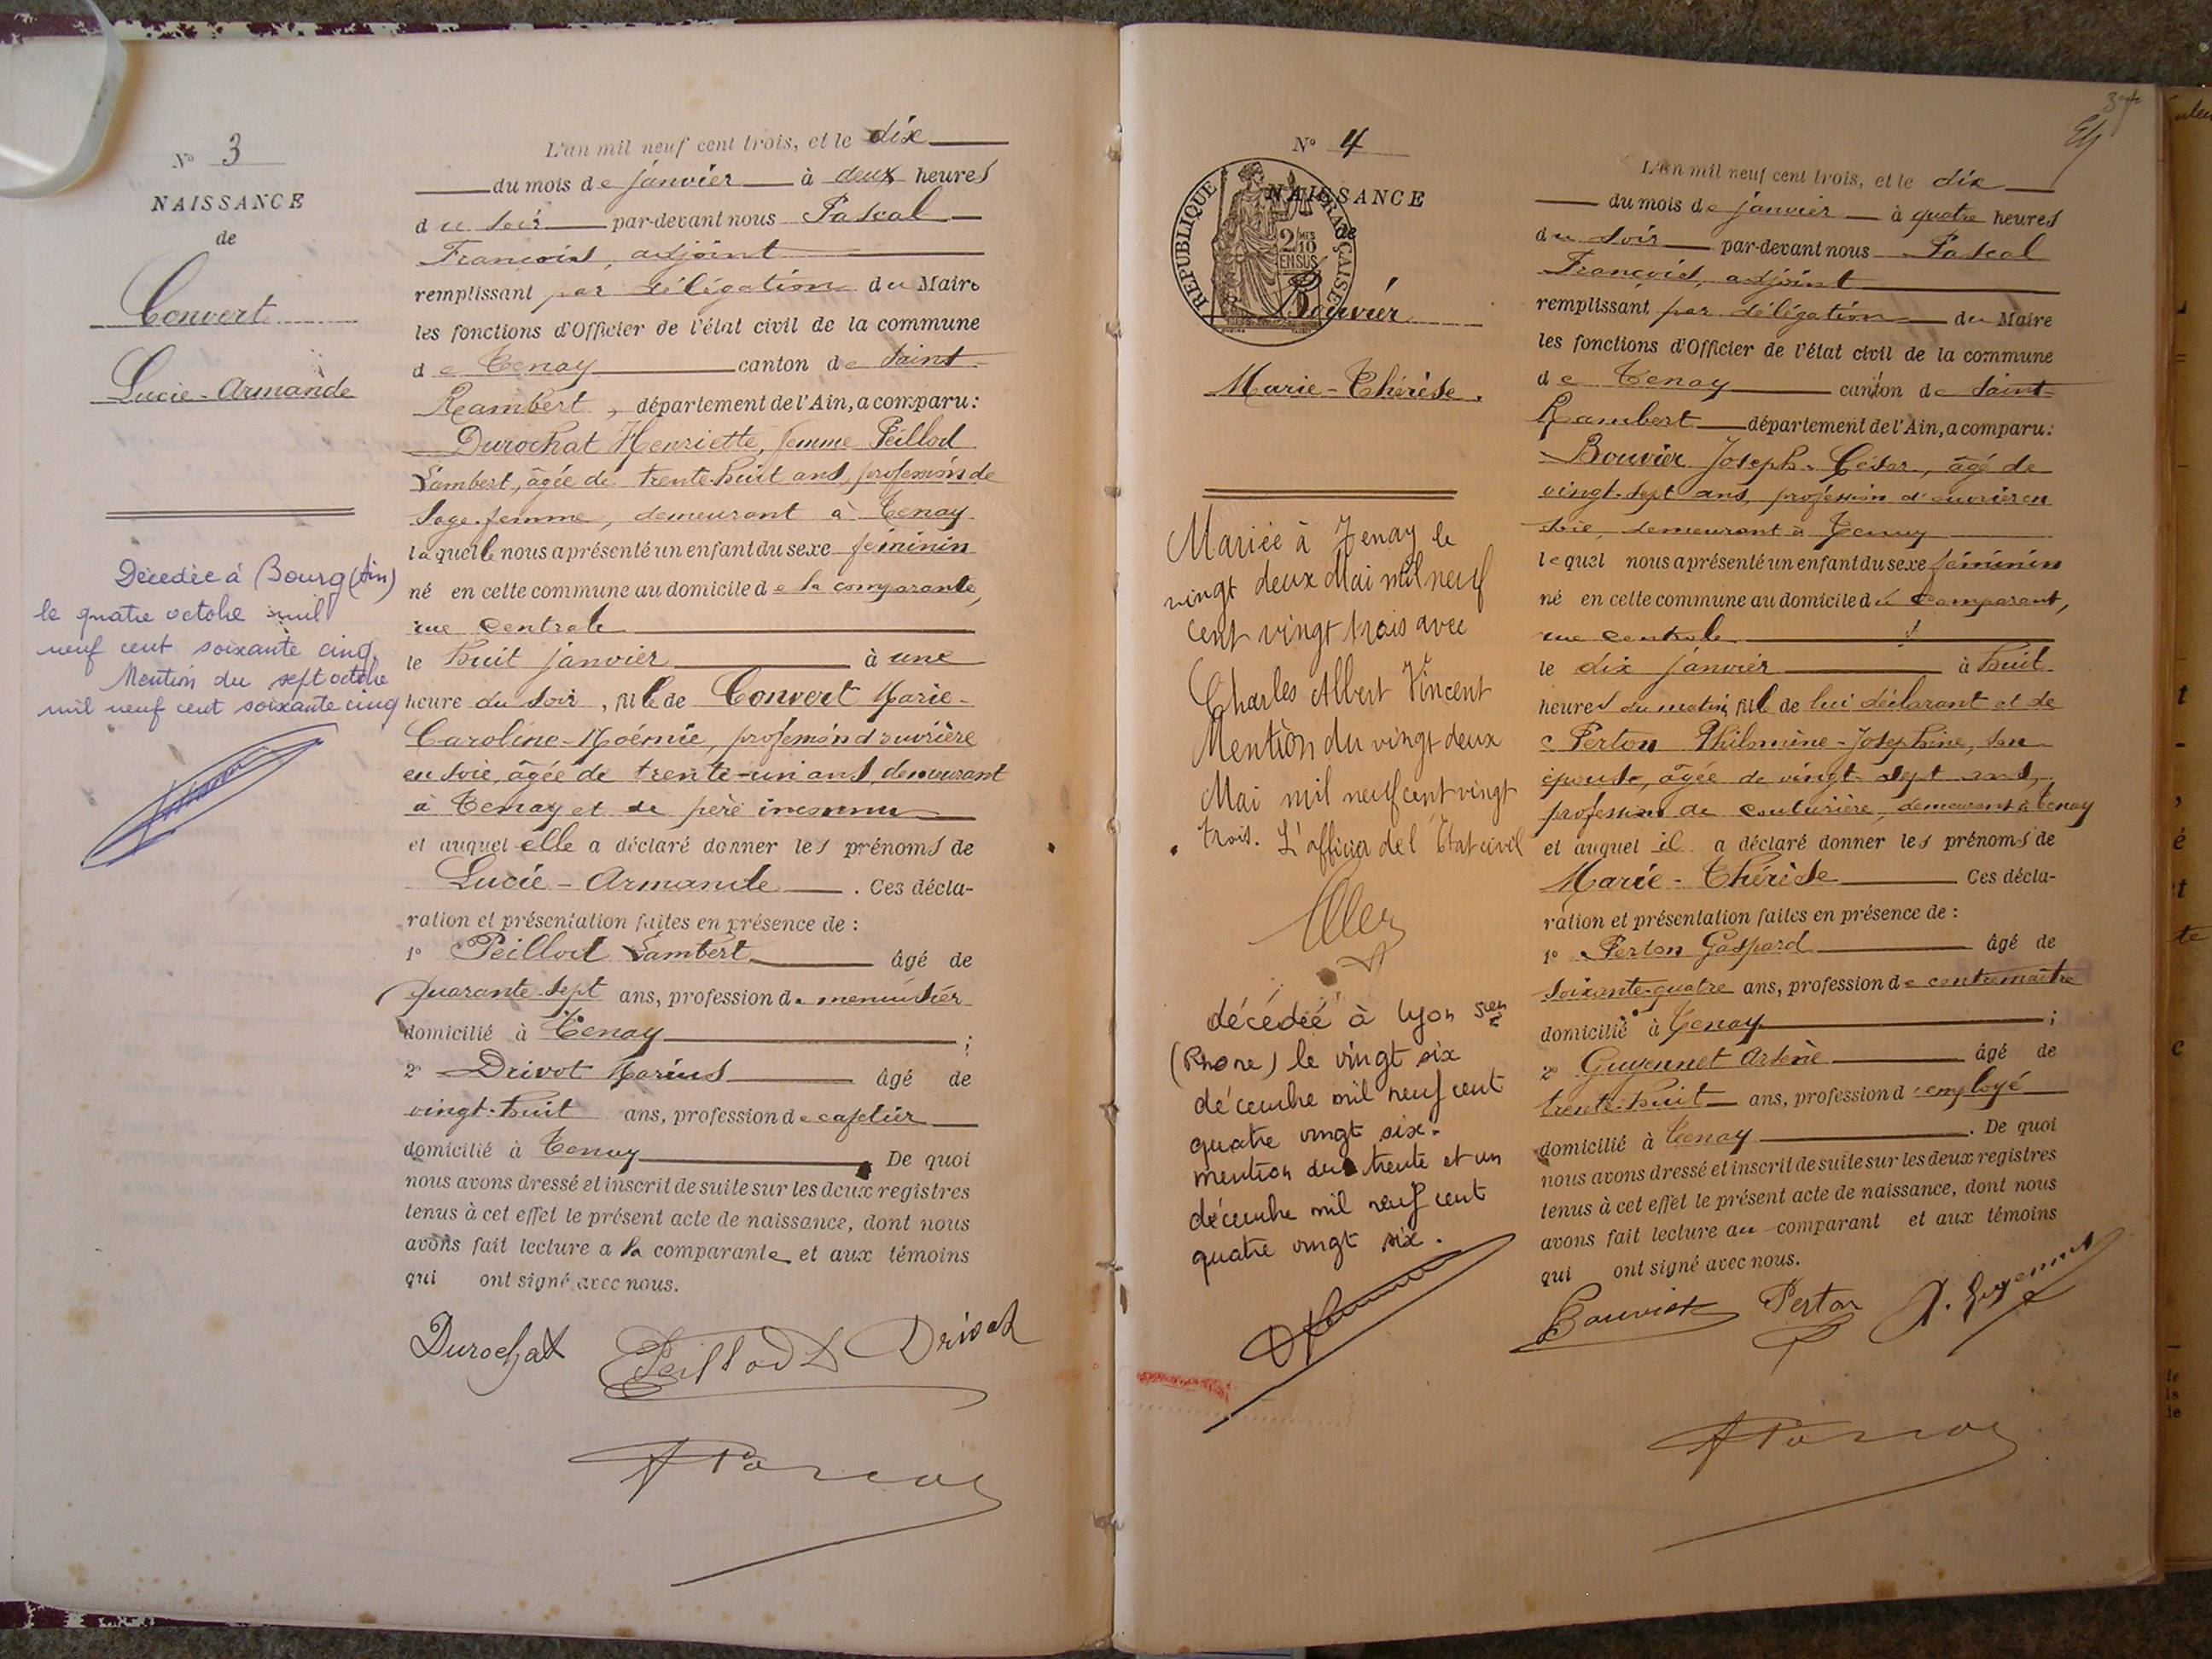 N° 3
NAISSANCE
de
Convert
Lucie-Armande
Décédée à Bourg (Ain)
le quatre octobre mil
neuf cent soixante cinq.
Mention du sept octobre
mil neuf cent soixante cinq
L'an mil neuf cent trois, et le dix
du mois de janvier à deux heures
du soir par-devant nous Pascal
François, adjoint
remplissant par délégation du Maire
les fonctions d'Officier de l'état civil de la commune
de Tenay canton de Saint-
Rambert, département de l'Ain, a comparu:
Durochat Henriette, femme Peillod
Lambert, âgée de trente-huit ans, profession de
sage-femme, demeurant à Tenay
laquelle nous a présenté un enfant du sexe féminin
né en cette commune au domicile de la comparante,
rue Centrale
le huit janvier à une
heure du soir, fille de Convert Marie-
Caroline-Noémie, profession d'ouvrière
en soie, âgée de trente-un ans, demeurant
à Tenay et de père inconnu
et auquel elle a déclaré donner les prénoms de
Lucie-Armande. Ces décla-
ration et présentation faites en présence de :
1° Peillod Lambert âgé de
quarante-sept ans, profession de menuisier
domicilié à Tenay ;
2° Drivot Marius âgé de
vingt-huit ans, profession de cafetier
domicilié à Tenay. De quoi
nous avons dressé et inscrit de suite sur les deux registres
tenus à cet effet le présent acte de naissance, dont nous
avons fait lecture a la comparante et aux témoins
qui ont signé avec nous.
Durochat Peillod Drivot
N° 4
NAISSANCE
de
RÉPUBLIQUE FRANÇAISE
2/10 MES
EN SUS
Bouvier
Marie-Thérèse.
Mariée à Tenay le
vingt deux Mai mil neuf
cent vingt trois avec
Charles Albert Vincent
Mention du vingt deux
Mai mil neuf cent vingt
trois. L'officier de l'État civil
décédée à Lyon 5em
(Rhone) le vingt six
décembre mil neuf cent
quatre vingt six.
mention du trente et un
décembre mil neuf cent
quatre vingt six.
L'an mil neuf cent trois, et le dix
du mois de janvier à quatre heures
du soir par-devant nous Pascal
François, adjoint
remplissant par délégation du Maire
les fonctions d'Officier de l'état civil de la commune
de Tenay canton de Saint-
Rambert département de l'Ain, a comparu:
Bouvier Joseph-César, âgé de
vingt-sept ans, profession d'ouvrier en
soie, demeurant à Tenay
lequel nous a présenté un enfant du sexe féminin
né en cette commune au domicile du comparant,
rue centrale
le dix janvier à huit
heures du matin, fille de lui déclarant et de
Perton Philomène-Joséphine, son
épouse, âgée de vingt-sept ans,
profession de couturière, demeurant à Tenay
et auquel il a déclaré donner les prénoms de
Marie-Thérèse Ces décla-
ration et présentation faites en présence de :
1° Perton Gaspard âgé de
soixante-quatre ans, profession de contremaître
domicilié à Tenay ;
2° Guyennet Arsène âgé de
trente-huit ans, profession d'employé
domicilié à Tenay. De quoi
nous avons dressé et inscrit de suite sur les deux registres
tenus à cet effet le présent acte de naissance, dont nous
avons fait lecture au comparant et aux témoins
qui ont signé avec nous.
Bouvier Perton A. Guyennet